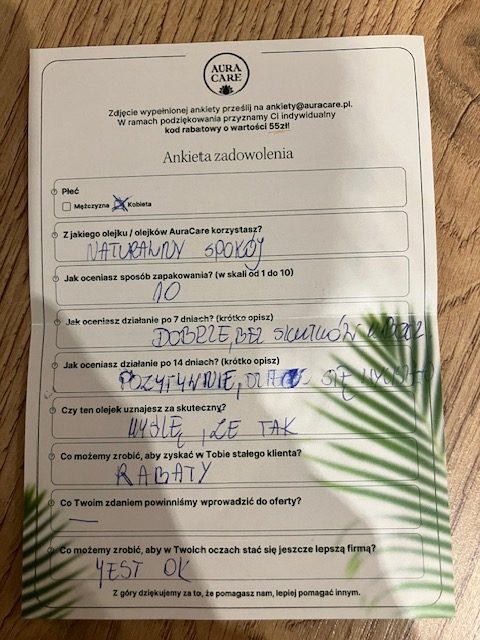 AURA
CARE
Zdjęcie wypełnionej ankiety prześlij na ankiety@auracare.pl.
W ramach podziękowania przyznamy Ci indywidualny
kod rabatowy o wartości 55zł!
Ankieta zadowolenia
Płeć
Mężczyzna Kobieta
Z jakiego olejku / olejków AuraCare korzystasz?
NATURALNY SPOKÓJ
Jak oceniasz sposób zapakowania? (w skali od 1 do 10)
10
Jak oceniasz działanie po 7 dniach? (krótko opisz)
DOBRZE, BEZ SKUTKÓW
Jak oceniasz działanie po 14 dniach? (krótko opisz)
POZYTYWNIE, SIĘ
Czy ten olejek uznajesz za skuteczny?
MYŚLĘ, ŻE TAK
Co możemy zrobić, aby zyskać w Tobie stałego klienta?
RABATY
Co Twoim zdaniem powinniśmy wprowadzić do oferty?
—
Co możemy zrobić, aby w Twoich oczach stać się jeszcze lepszą firmą?
JEST OK
Z góry dziękujemy za to, że pomagasz nam, lepiej pomagać innym.